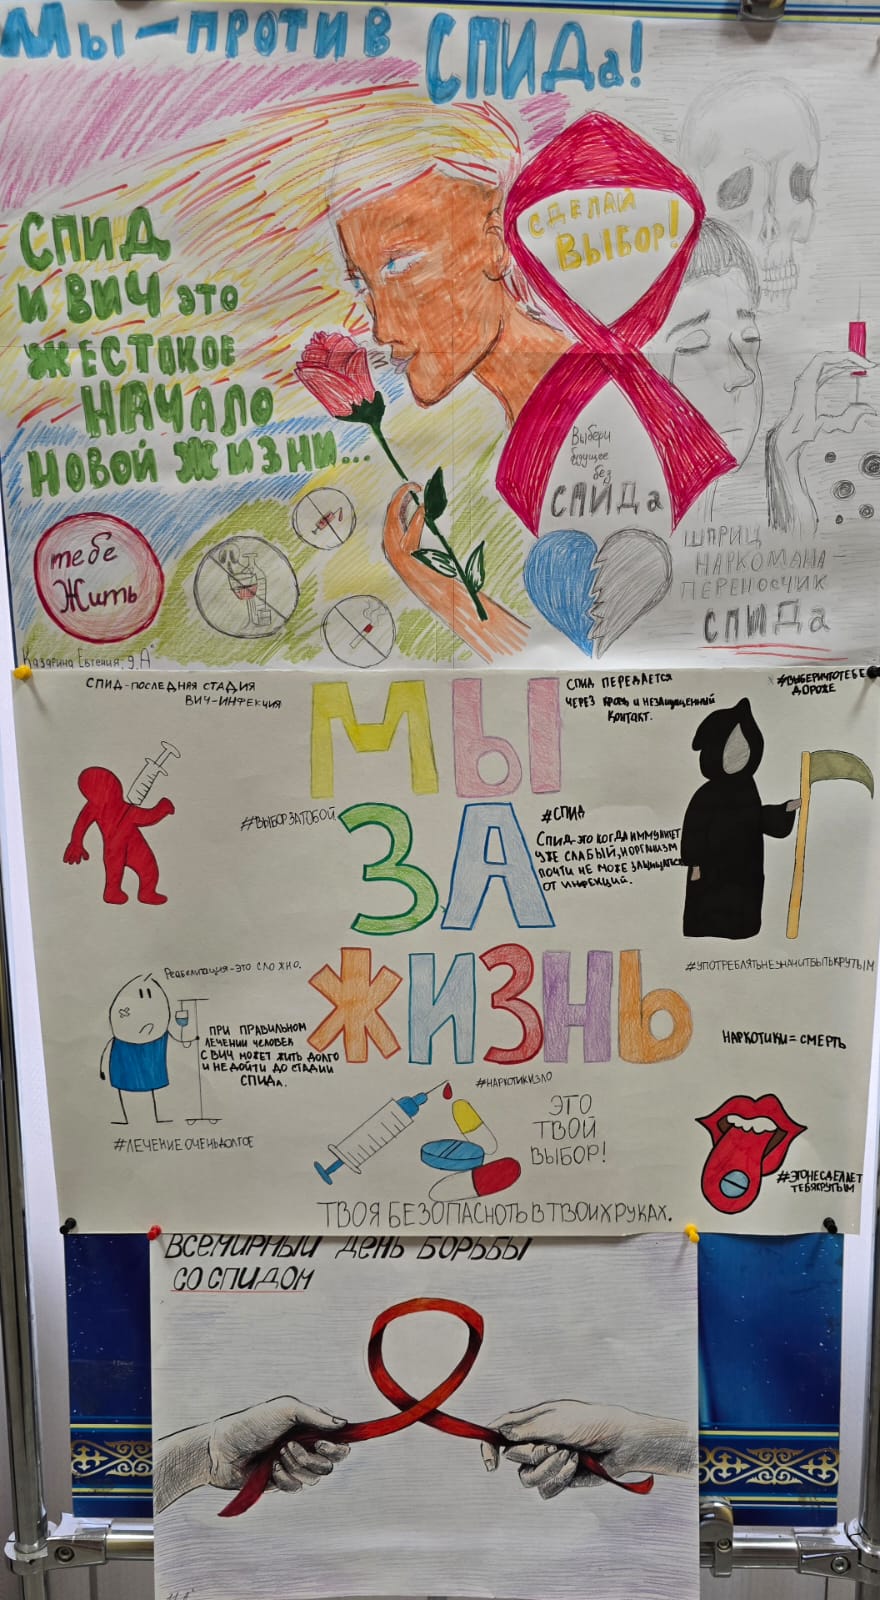 Мы-против СПИДа!
СПИД
и ВИЧ это
жестокое
начало
новой жизни...
Сделай
выбор!
Выбери
будущее
без
СПИДа
тебе
жить
шприц
наркомана-
переносчик
СПИДа
Казарина Евгения, 9"А"
СПИД-ПОСЛЕДНЯЯ СТАДИЯ
ВИЧ-ИНФЕКЦИЯ
МЫ
ЗА
ЖИЗНЬ
СПИД ПЕРЕДАЕТСЯ
ЧЕРЕЗ КРОВЬ И НЕЗАЩИЩЕННЫЙ
КОНТАКТ.
#ВЫБЕРИЧТОТЕБЕ
ДОРОЖЕ
#ВЫБОРЗАТОБОЙ
#СПИД
СПИД-ЭТО КОГДА ИММУНИТЕТ
УЖЕ СЛАБЫЙ, И ОРГАНИЗМ
ПОЧТИ НЕ МОЖЕ ЗАЩИЩАТЬСЯ
ОТ ИНФЕКЦИЙ.
#УПОТРЕБЛЯТЬНЕЗНАЧИТБЫТЬКРУТЫМ
Реабелитация-ЭТО СЛОЖНО.
ПРИ ПРАВИЛЬНОМ
ЛЕЧЕНИИ ЧЕЛОВЕК
С ВИЧ МОЖЕТ ЖИТЬ ДОЛГО
И НЕ ДОЙТИ ДО СТАДИИ
СПИДа.
НАРКОТИКИ = СМЕРТЬ
#НАРКОТИКИЗЛО
#ЛЕЧЕНИЕОЧЕНЬДОЛГОЕ
ЭТО
ТВОЙ
ВЫБОР!
#ЭТОНЕСДЕЛАЕТ
ТЕБЯКРУТЫМ
ТВОЯ БЕЗОПАСНОТЬ В ТВОИХ РУКАХ.
ВСЕМИРНЫЙ ДЕНЬ БОРЬБЫ
СО СПИДОМ